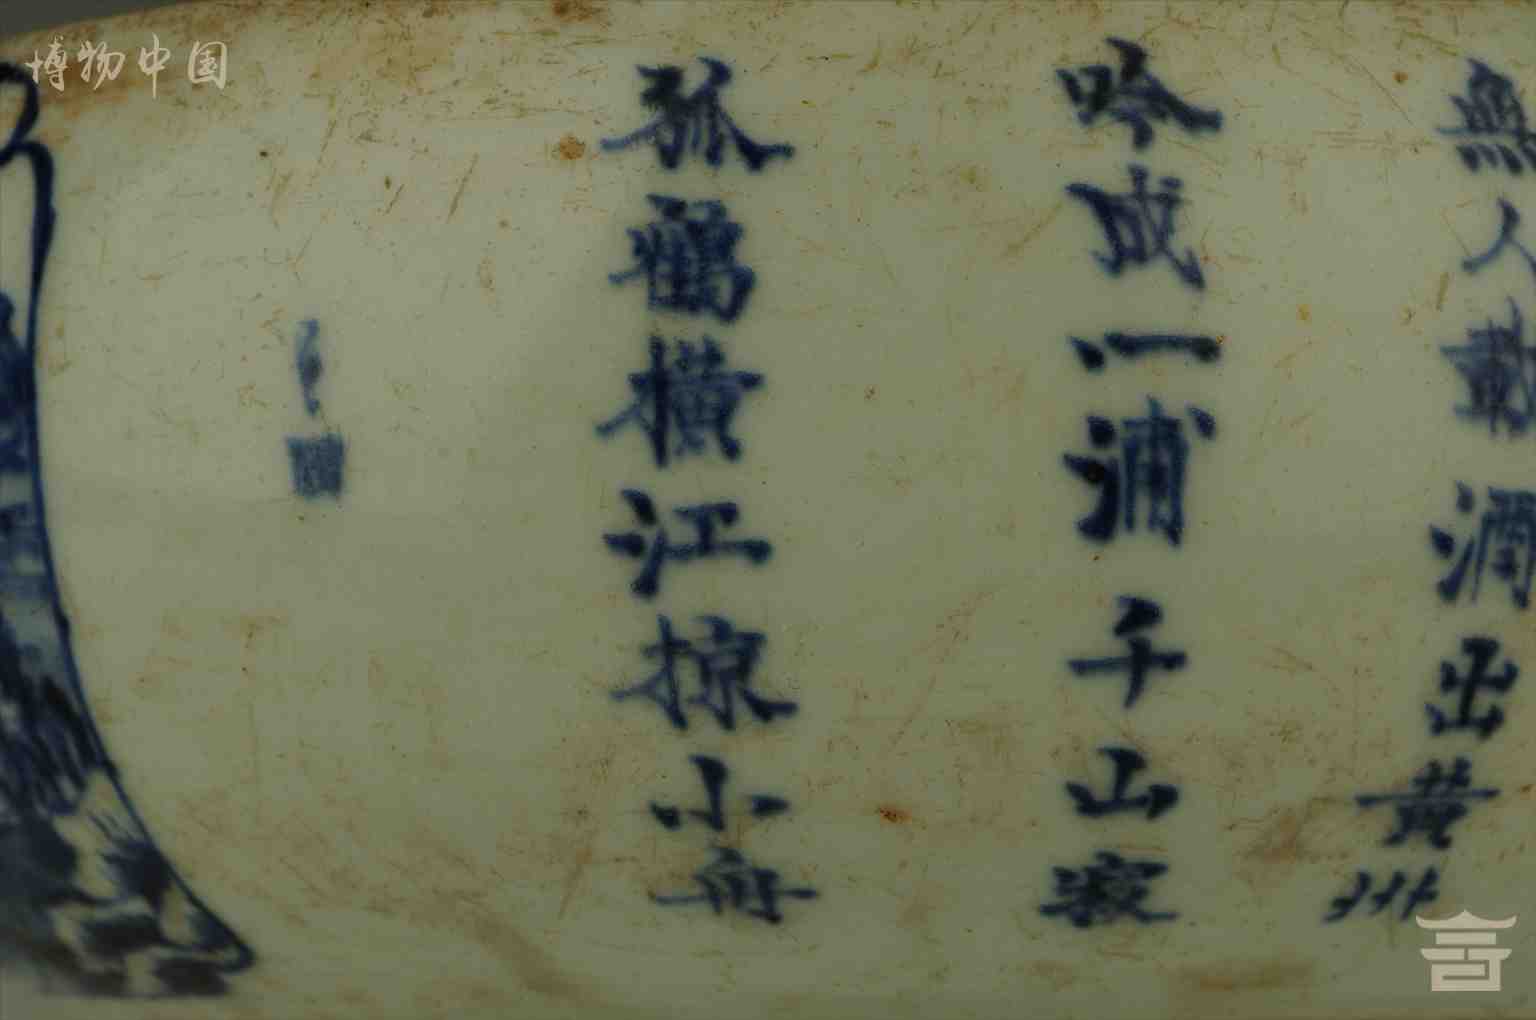 博物中国
無人載酒出黄州
吟成一浦千山寂
孤鶴横江掠小舟